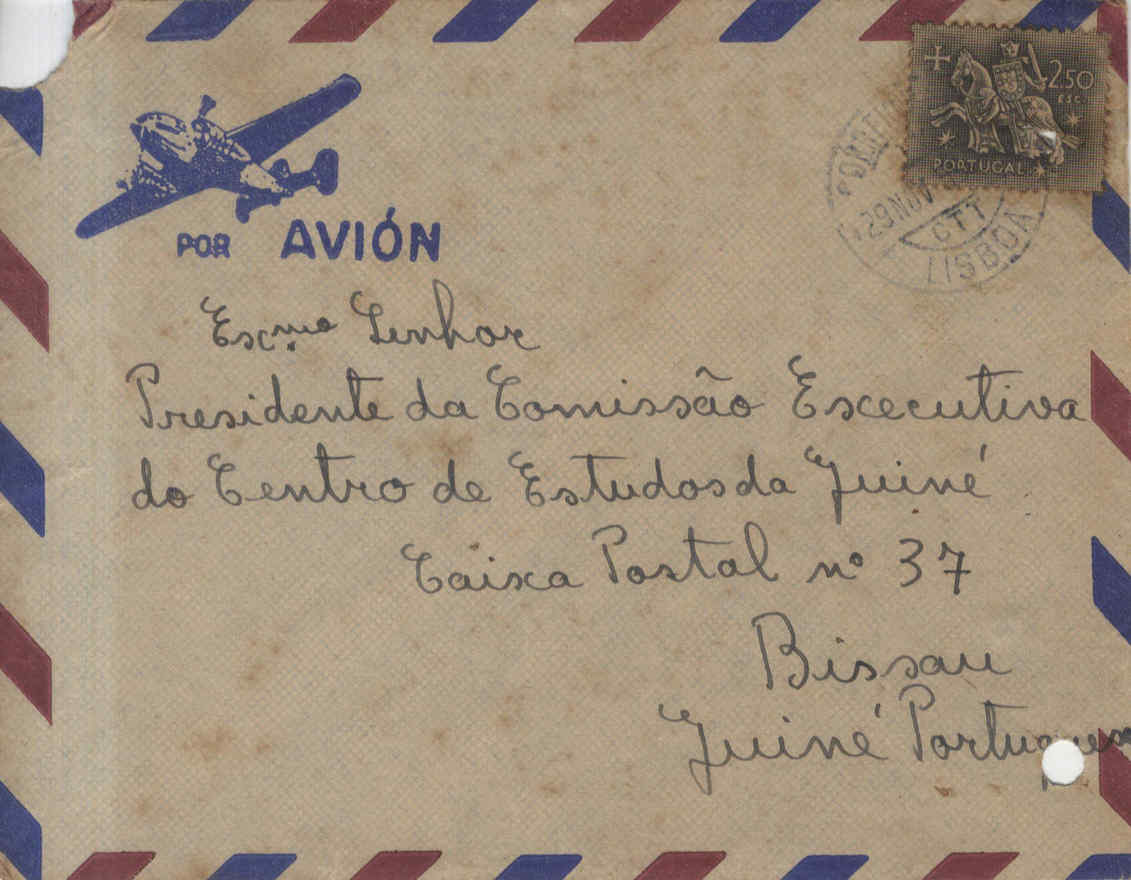 2$50
ESC.
PORTUGAL
29 NOV
CTT
LISBOA
POR AVIÓN
Excmo Senhor
Presidente da Comissão Executiva
do Centro de Estudos da Guiné
Caixa Postal nº 37
Bissau
Guiné